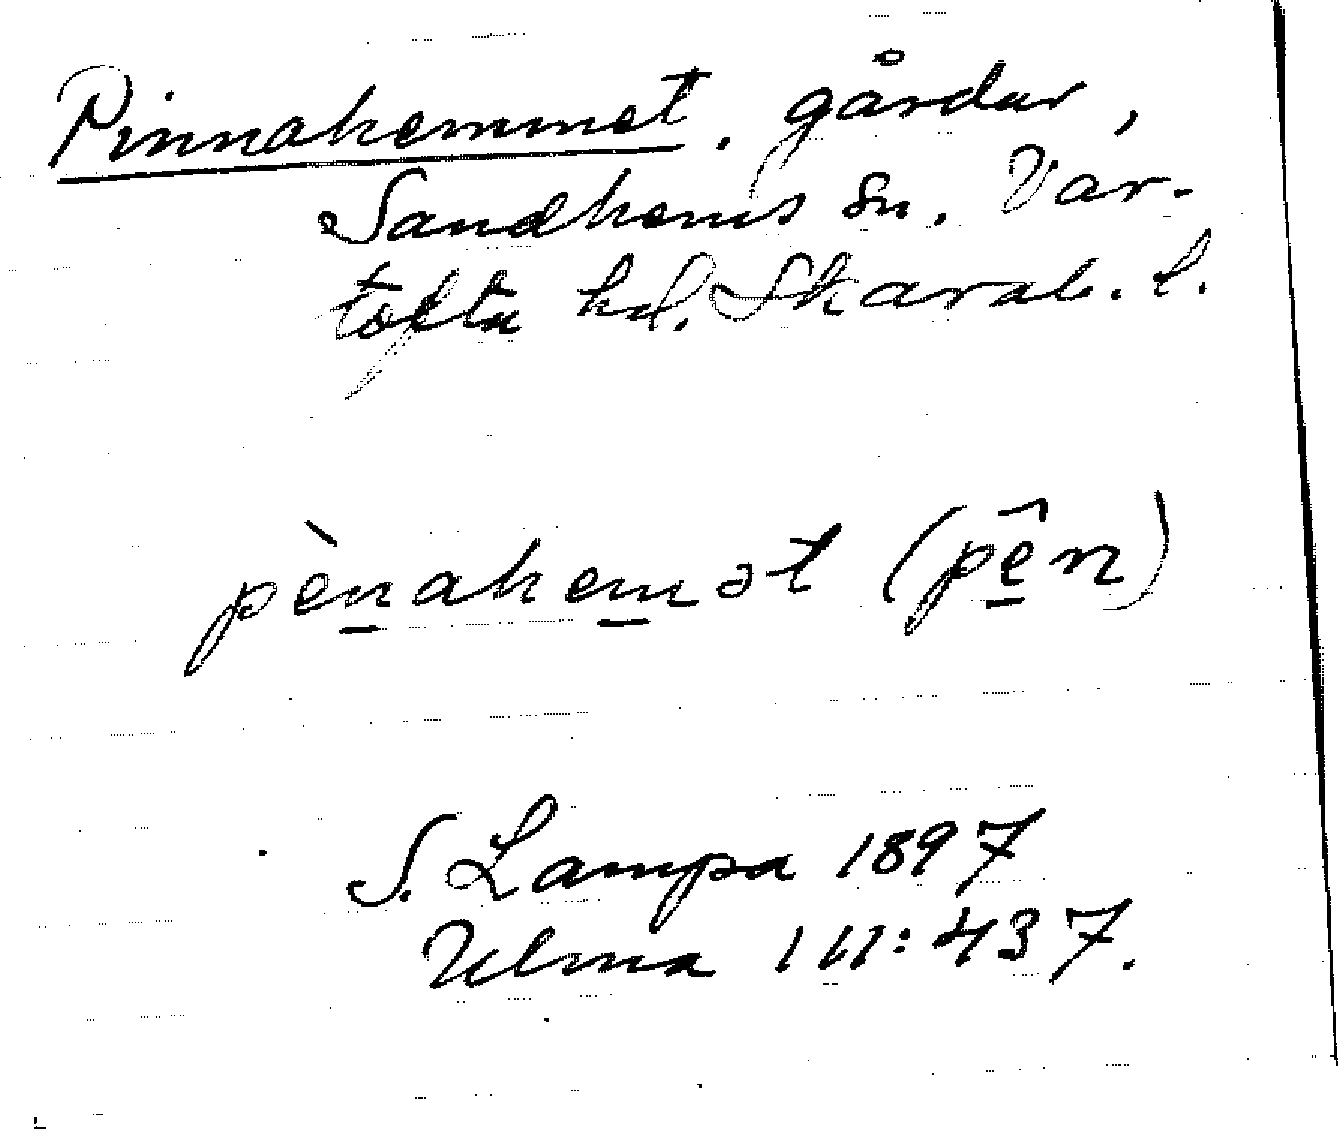 Pinnahemmet, gårdar,
Sandhems sn. Var-
tofta hd. Skarab. l.
pènahemət (pên)
S. Lampa 1897
Ulma 111:437.